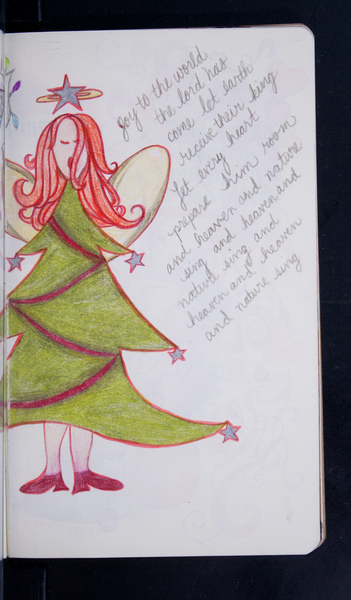 Joy to the world
the lord has
come let earth
recieve their king
let every heart
prepare him room
and heaven and nature
sing and heaven and
nature sing and
heaven and heaven
and nature sing